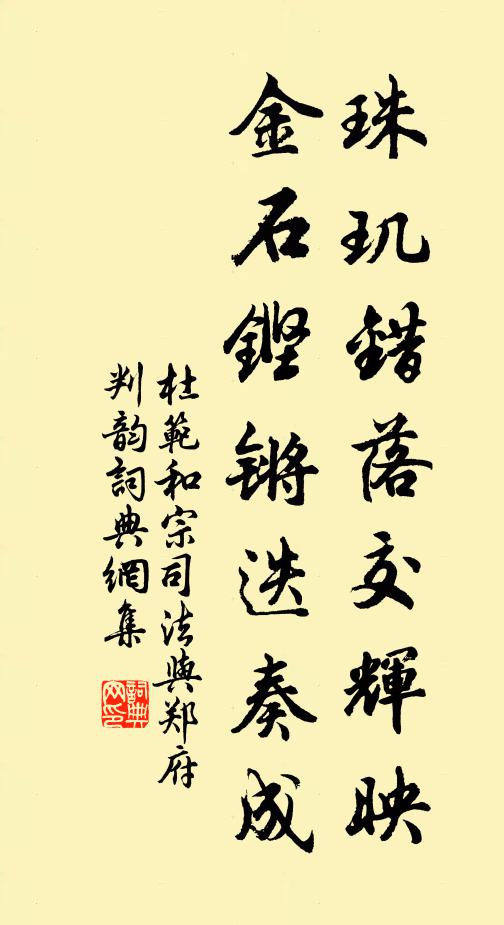 珠玑錯落交輝映
金石鏗锵迭奏成
杜範和宗司法與郑府
判韵詞典網集
詞典网印